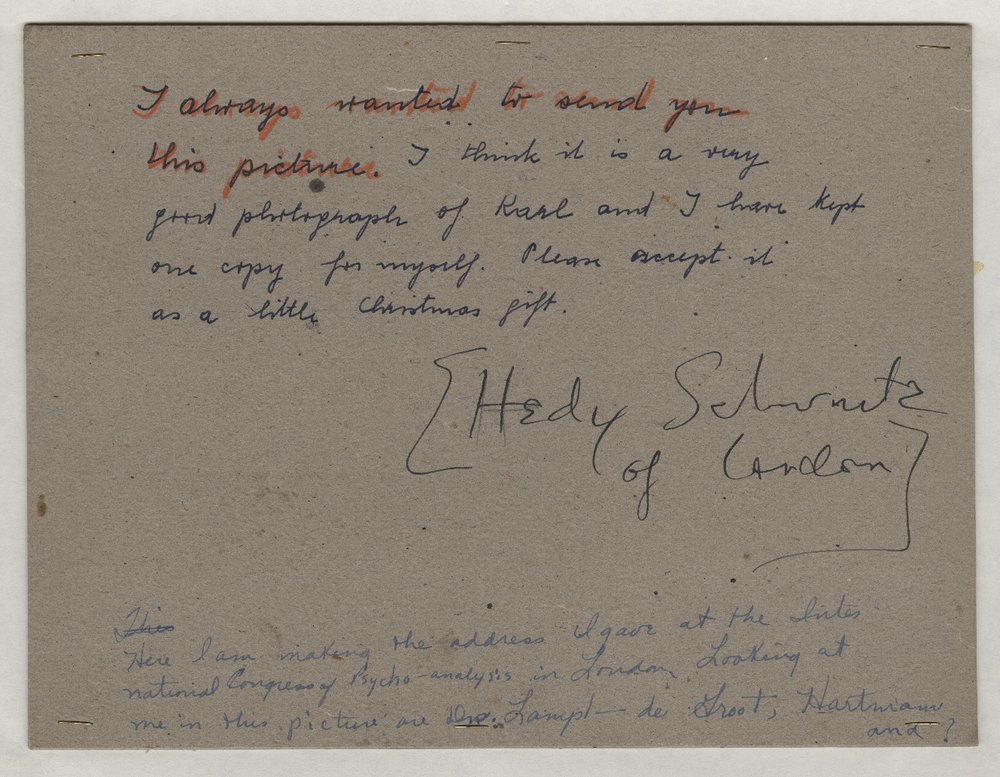 I always wanted to send you
this picture. I think it is a very
good photograph of Karl and I have kept
one copy for myself. Please accept it
as a little Christmas gift.
[Hedy Schwartz
of London]
This
Here I am making the address I gave at the Inter
national Congress of Psycho-analysis in London. Looking at
me in this picture are Drs. Lampl-de Groot, Hartmann
and ?